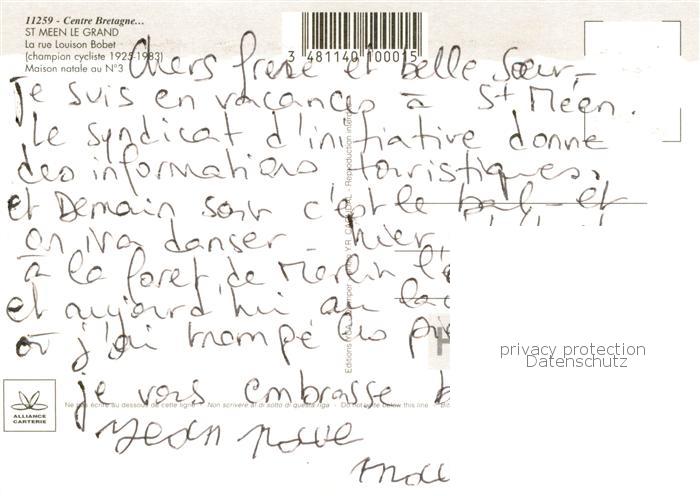 11259 - Centre Bretagne...
ST MEEN LE GRAND
La rue Louison Bobet
(champion cycliste 1925-1983)
Maison natale au N°3
3 481140 100015
Chers frère et belle Sœur,
Je suis en vacances à St Méen.
Le syndicat d'initiative donne
des informations touristiques,
et Demain soir c'est le bal et
on ira danser - hier
à la foret de Merlin
et aujourd'hui au
où j'ai trempé les
je vous embrasse
Jean
Editions
Reproduction
ALLIANCE
CARTERIE
Ne rien écrire au dessous de cette ligne - Non scrivere al di sotto di questa riga - Do not write below this line
privacy protection
Datenschutz